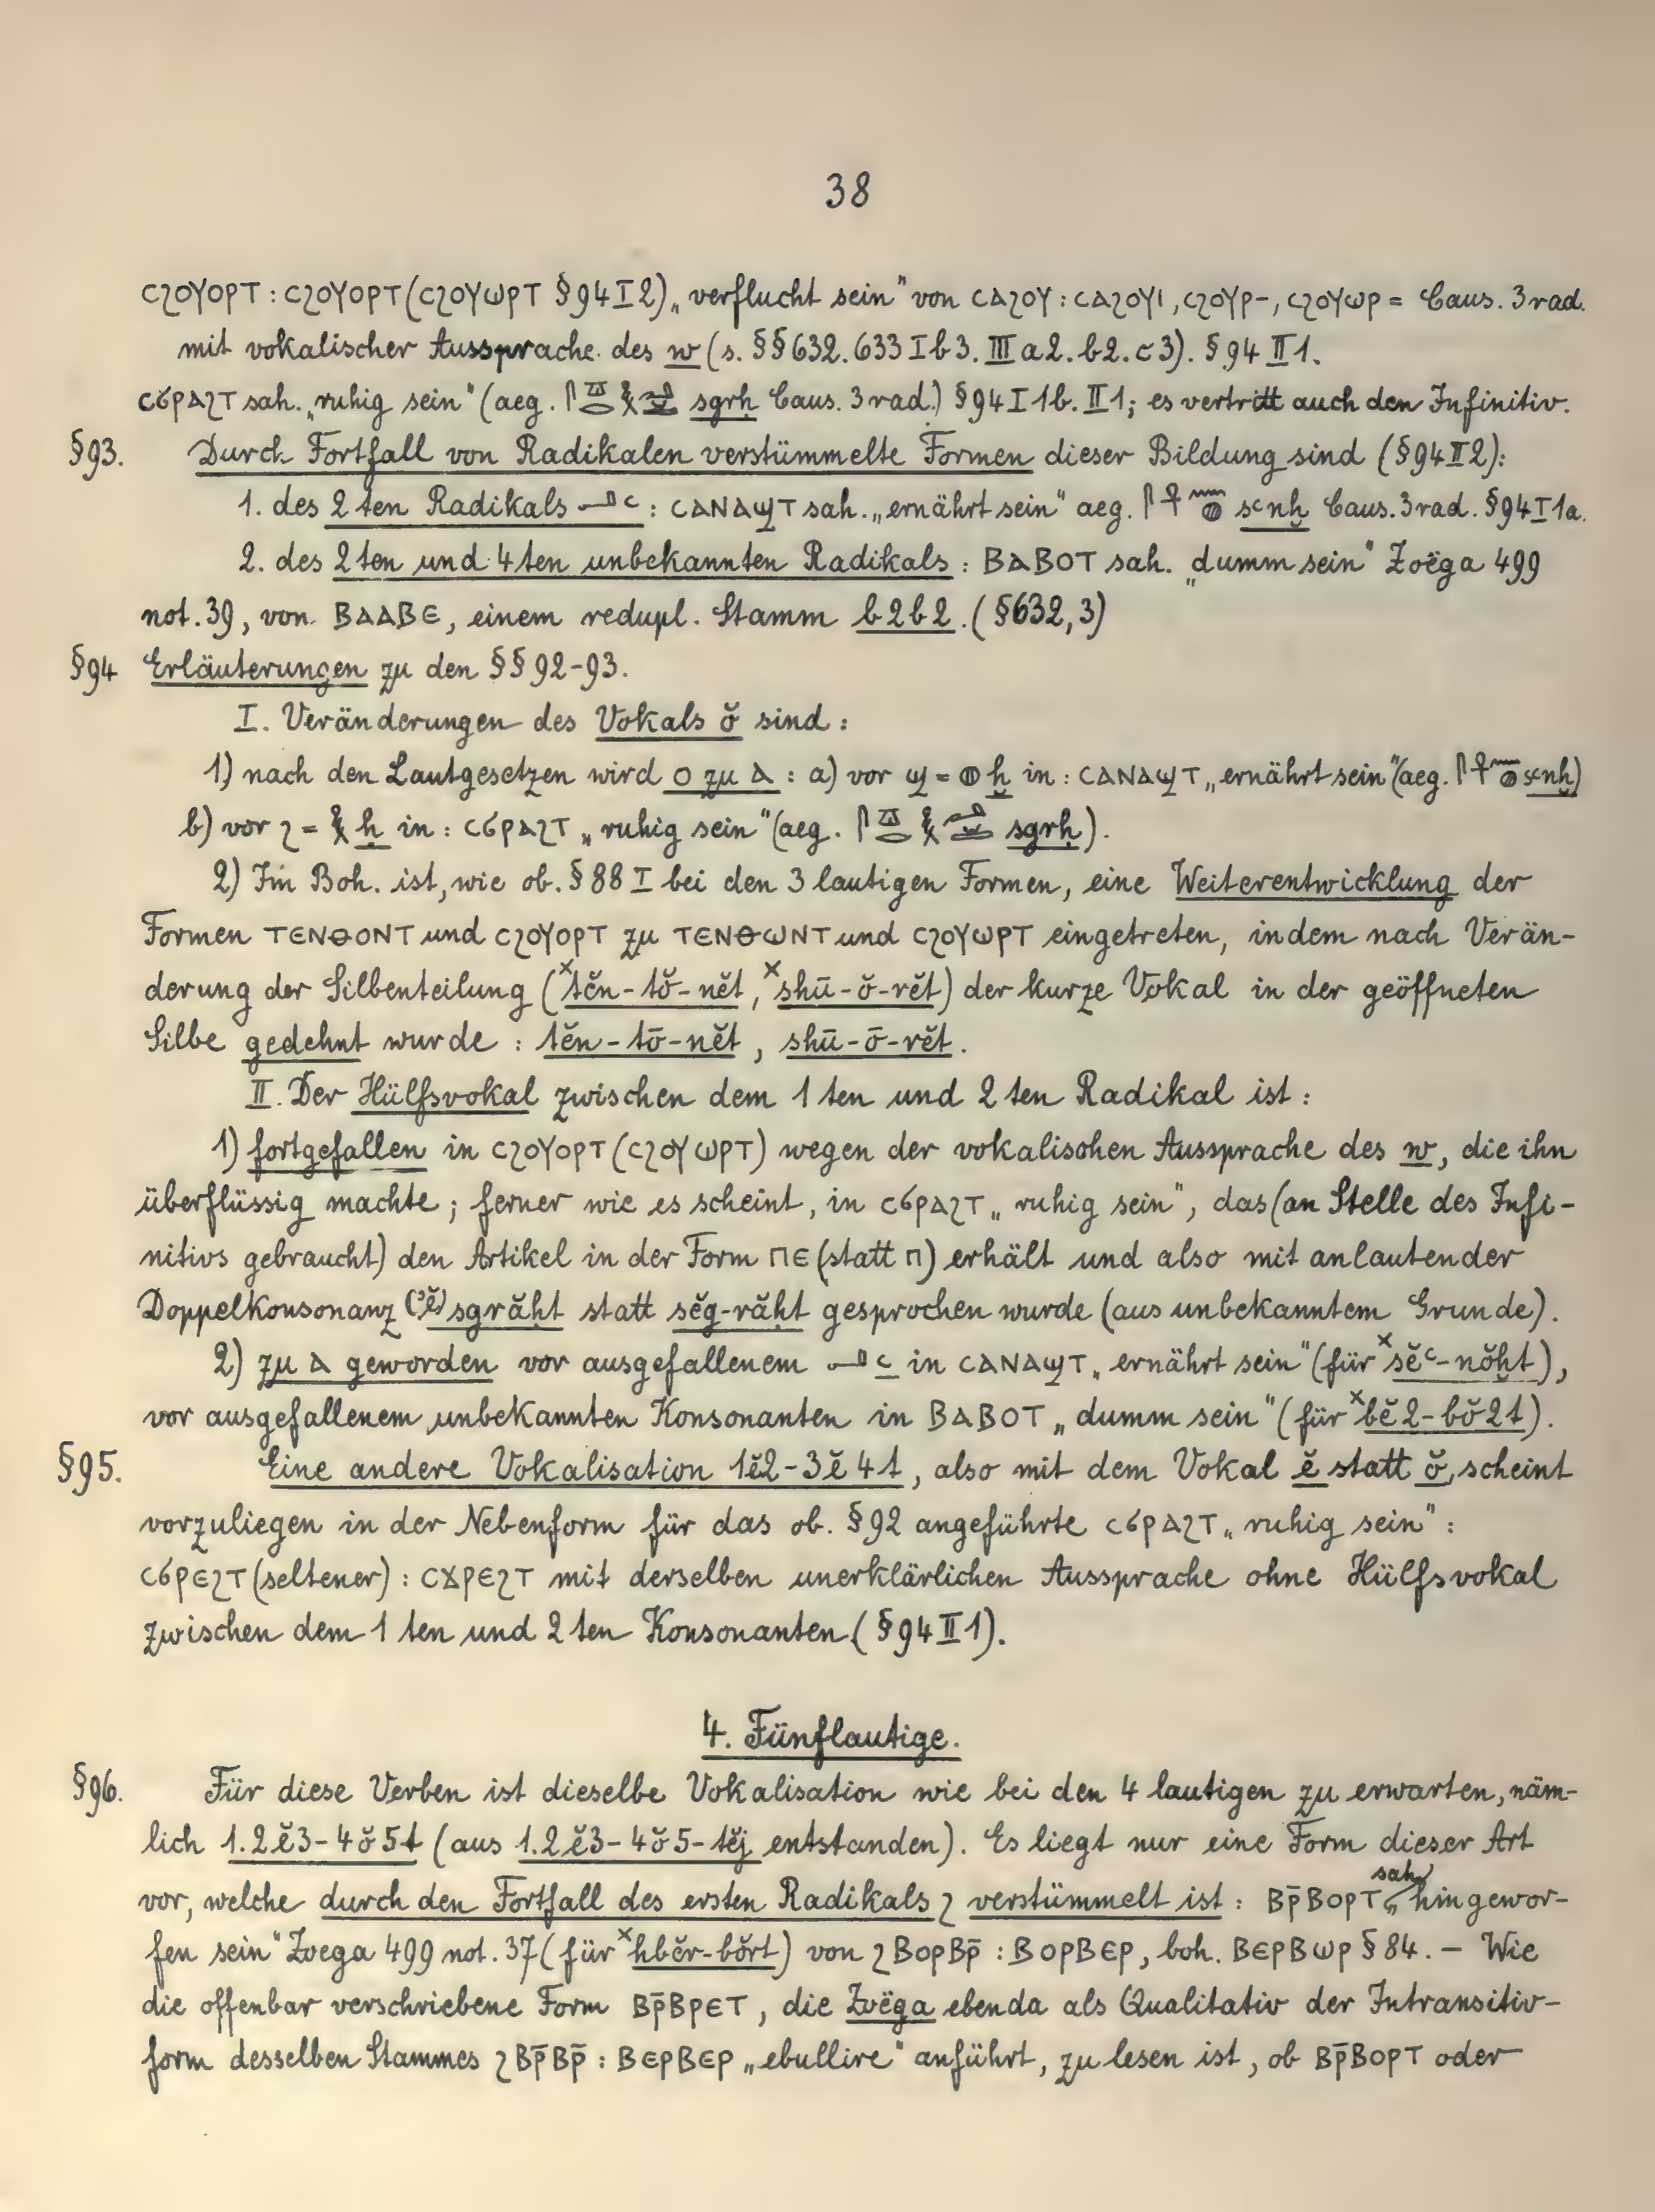 38
ⲥϩⲟⲩⲟⲣⲧ : ⲥϩⲟⲩⲟⲣⲧ (ⲥϩⲟⲩⲱⲣⲧ § 94 I 2) „verflucht sein“ von ⲥⲁϩⲟⲩ : ⲥⲁϩⲟⲩⲓ, ⲥϩⲟⲩⲣ-, ⲥϩⲟⲩⲱⲣ = Caus. 3 rad.
mit vokalischer Aussprache des w (s. §§ 632. 633 I b 3. III a 2. b 2. c 3). § 94 II 1.
ⲥϭⲣⲁϩⲧ sah. „ruhig sein“ (aeg. sgrḥ Caus. 3 rad.) § 94 I 1b. II 1; es vertritt auch den Infinitiv.
§ 93. Durch Fortfall von Radikalen verstümmelte Formen dieser Bildung sind (§ 94 II 2):
1. des 2ten Radikals 𓂝 ꜥ : ⲥⲁⲛⲁϣⲧ sah. „ernährt sein“ aeg. sꜥnḫ Caus. 3 rad. § 94 I 1a.
2. des 2ten und 4ten unbekannten Radikals : ⲃⲁⲃⲟⲧ sah. „dumm sein“ Zoëga 499
not. 39, von ⲃⲁⲁⲃⲉ, einem redupl. Stamm b2b2. (§ 632, 3)
§ 94 Erläuterungen zu den §§ 92-93.
I. Veränderungen des Vokals ŏ sind :
1) nach den Lautgesetzen wird ⲟ zu ⲁ : a) vor ϣ = 𓐍 ḫ in : ⲥⲁⲛⲁϣⲧ „ernährt sein“ (aeg. sꜥnḫ)
b) vor ϩ = 𓎛 ḥ in : ⲥϭⲣⲁϩⲧ „ruhig sein“ (aeg. sgrḥ).
2) Im Boh. ist, wie ob. § 88 I bei den 3 lautigen Formen, eine Weiterentwicklung der
Formen ⲧⲉⲛⲑⲟⲛⲧ und ⲥϩⲟⲩⲟⲣⲧ zu ⲧⲉⲛⲑⲱⲛⲧ und ⲥϩⲟⲩⲱⲣⲧ eingetreten, indem nach Verän-
derung der Silbenteilung (ˣtĕn-tŏ-nĕt, ˣshū-ŏ-rĕt) der kurze Vokal in der geöffneten
Silbe gedehnt wurde : tĕn-tō-nĕt, shū-ō-rĕt.
II. Der Hülfsvokal zwischen dem 1ten und 2ten Radikal ist :
1) fortgefallen in ⲥϩⲟⲩⲟⲣⲧ (ⲥϩⲟⲩⲱⲣⲧ) wegen der vokalischen Aussprache des w, die ihn
überflüssig machte ; ferner wie es scheint, in ⲥϭⲣⲁϩⲧ „ruhig sein“, das (an Stelle des Infi-
nitivs gebraucht) den Artikel in der Form ⲡⲉ (statt ⲡ) erhält und also mit anlautender
Doppelkonsonanz (ʾĕ)sgrăḥt statt sĕg-răḥt gesprochen wurde (aus unbekanntem Grunde).
2) zu ⲁ geworden vor ausgefallenem 𓂝 ꜥ in ⲥⲁⲛⲁϣⲧ „ernährt sein“ (für ˣsĕꜥ-nŏḫt),
vor ausgefallenem unbekannten Konsonanten in ⲃⲁⲃⲟⲧ „dumm sein“ (für ˣbĕ2-bŏ2t).
§ 95. Eine andere Vokalisation 1ĕ2-3ĕ4t, also mit dem Vokal ĕ statt ŏ, scheint
vorzuliegen in der Nebenform für das ob. § 92 angeführte ⲥϭⲣⲁϩⲧ „ruhig sein“ :
ⲥϭⲣⲉϩⲧ (seltener) : ⲥϫⲣⲉϩⲧ mit derselben unerklärlichen Aussprache ohne Hülfsvokal
zwischen dem 1ten und 2ten Konsonanten (§ 94 II 1).
4. Fünflautige.
§ 96. Für diese Verben ist dieselbe Vokalisation wie bei den 4 lautigen zu erwarten, näm-
lich 1.2ĕ3-4ŏ5t (aus 1.2ĕ3-4ŏ5-tĕj entstanden). Es liegt nur eine Form dieser Art
vor, welche durch den Fortfall des ersten Radikals ϩ verstümmelt ist : ⲃⲣ̄ⲃⲟⲣⲧ sah. „hingewor-
fen sein“ Zoega 499 not. 37 (für ˣhbĕr-bŏrt) von ϩⲃⲟⲣⲃⲣ̄ : ⲃⲟⲣⲃⲉⲣ, boh. ⲃⲉⲣⲃⲱⲣ § 84. – Wie
die offenbar verschriebene Form ⲃⲣ̄ⲃⲣⲉⲧ, die Zoëga ebenda als Qualitativ der Intransitiv-
form desselben Stammes ϩⲃⲣ̄ⲃⲣ̄ : ⲃⲉⲣⲃⲉⲣ „ebullire“ anführt, zu lesen ist, ob ⲃⲣ̄ⲃⲟⲣⲧ oder